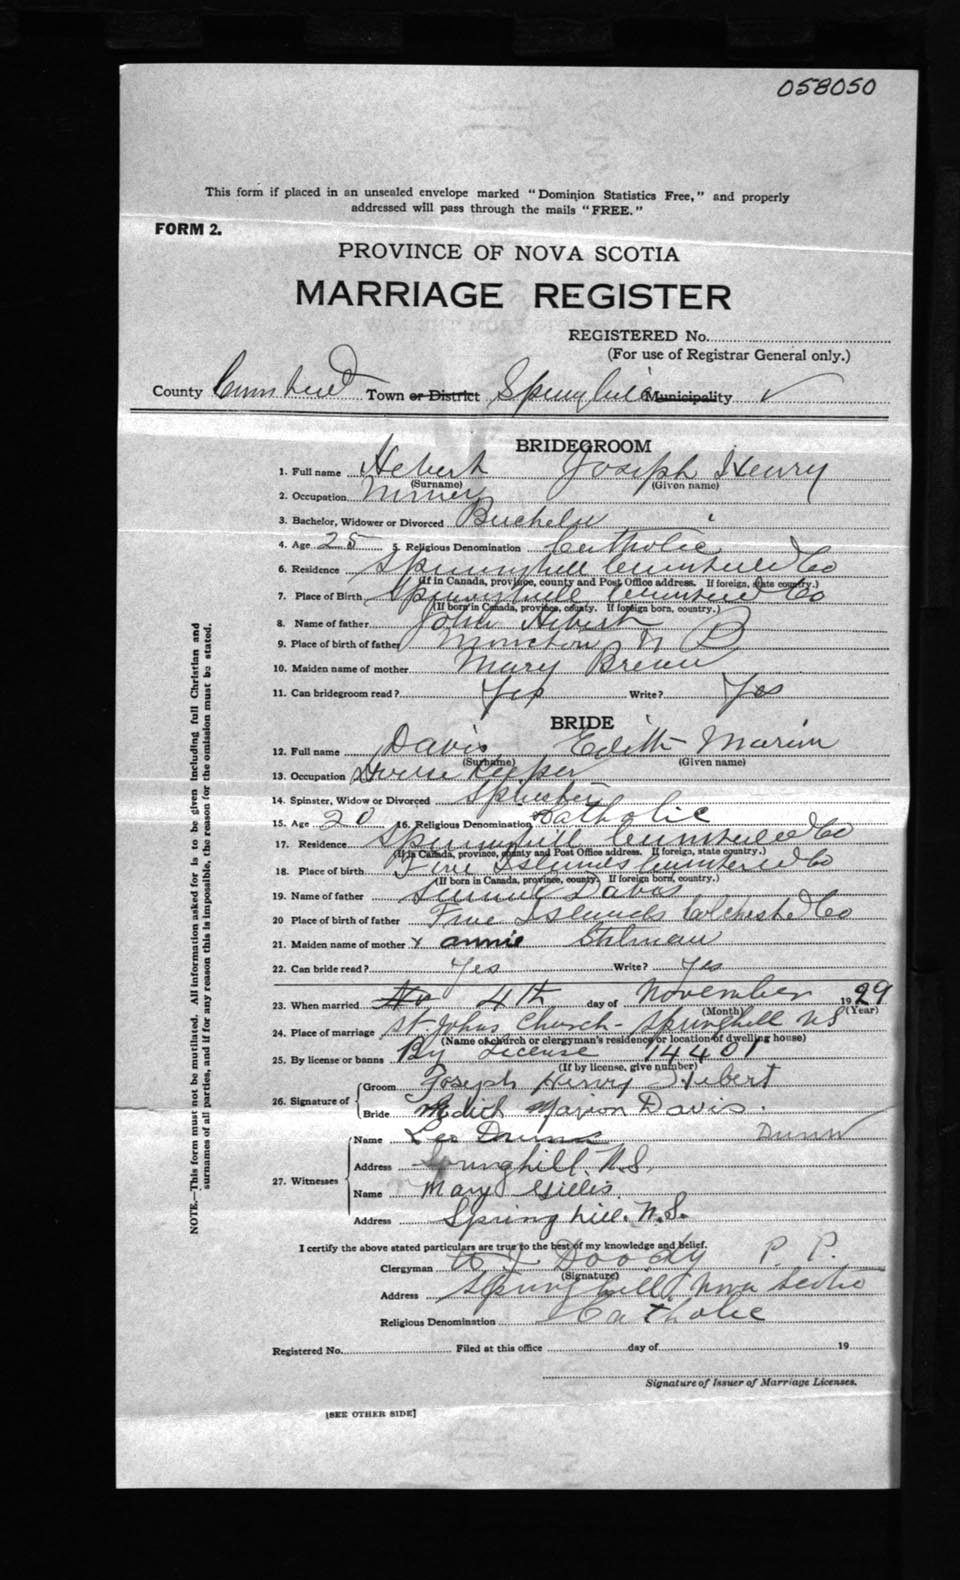 058050
This form if placed in an unsealed envelope marked "Dominion Statistics Free," and properly
addressed will pass through the mails "FREE."
FORM 2.
PROVINCE OF NOVA SCOTIA
MARRIAGE REGISTER
REGISTERED No.
(For use of Registrar General only.)
County Cumberland Town or District Springhill Municipality ✓
BRIDEGROOM
1. Full name Hebert Joseph Henry
(Surname) (Given name)
2. Occupation Miner
3. Bachelor, Widower or Divorced Bachelor
4. Age 25 5. Religious Denomination Catholic
6. Residence Springhill Cumberland Co
(If in Canada, province, county and Post Office address. If foreign, state country.)
7. Place of Birth Springhill Cumberland Co
(If born in Canada, province, county. If foreign born, country.)
8. Name of father John Hebert
9. Place of birth of father Moncton N B
10. Maiden name of mother Mary
11. Can bridegroom read? Yes Write? Yes
BRIDE
12. Full name Davis Edith Marion
(Surname) (Given name)
13. Occupation House Keeper
14. Spinster, Widow or Divorced Spinster
15. Age 20 16. Religious Denomination Catholic
17. Residence Springhill Cumberland Co
(If in Canada, province, county and Post Office address. If foreign, state country.)
18. Place of birth Five Islands Co
(If born in Canada, province, county. If foreign born, country.)
19. Name of father Davis
20 Place of birth of father Five Islands Colchester Co
21. Maiden name of mother x annie
22. Can bride read? Yes Write? Yes
23. When married 4th day of November 1929
(Month) (Year)
24. Place of marriage St Johns Church - Springhill N S
(Name of church or clergyman's residence or location of dwelling house)
25. By license or banns By License 14401
(If by license, give number)
26. Signature of Groom Joseph Henry Hebert
Bride Edith Marion Davis.
27. Witnesses Name Leo Dunn Dunn
Address Springhill. N.S.
Name Mary Gillis.
Address Spring hill. N.S.
I certify the above stated particulars are true to the best of my knowledge and belief.
Clergyman Doody P. P.
(Signature)
Address Springhill, Nova Scotia
Religious Denomination Catholic
Registered No. Filed at this office day of 19
Signature of Issuer of Marriage Licenses.
[SEE OTHER SIDE]
NOTE.—This form must not be mutilated. All information asked for is to be given including full Christian and
surnames of all parties, and if for any reason this is impossible, the reason for the omission must be stated.